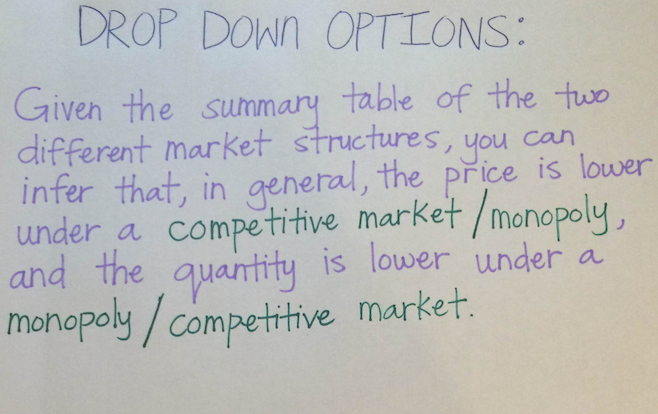 DROP DOWN OPTIONS:
Given the summary table of the two
different market structures, you can
infer that, in general, the price is lower
under a competitive market/monopoly,
and the quantity is lower under a
monopoly/competitive market.